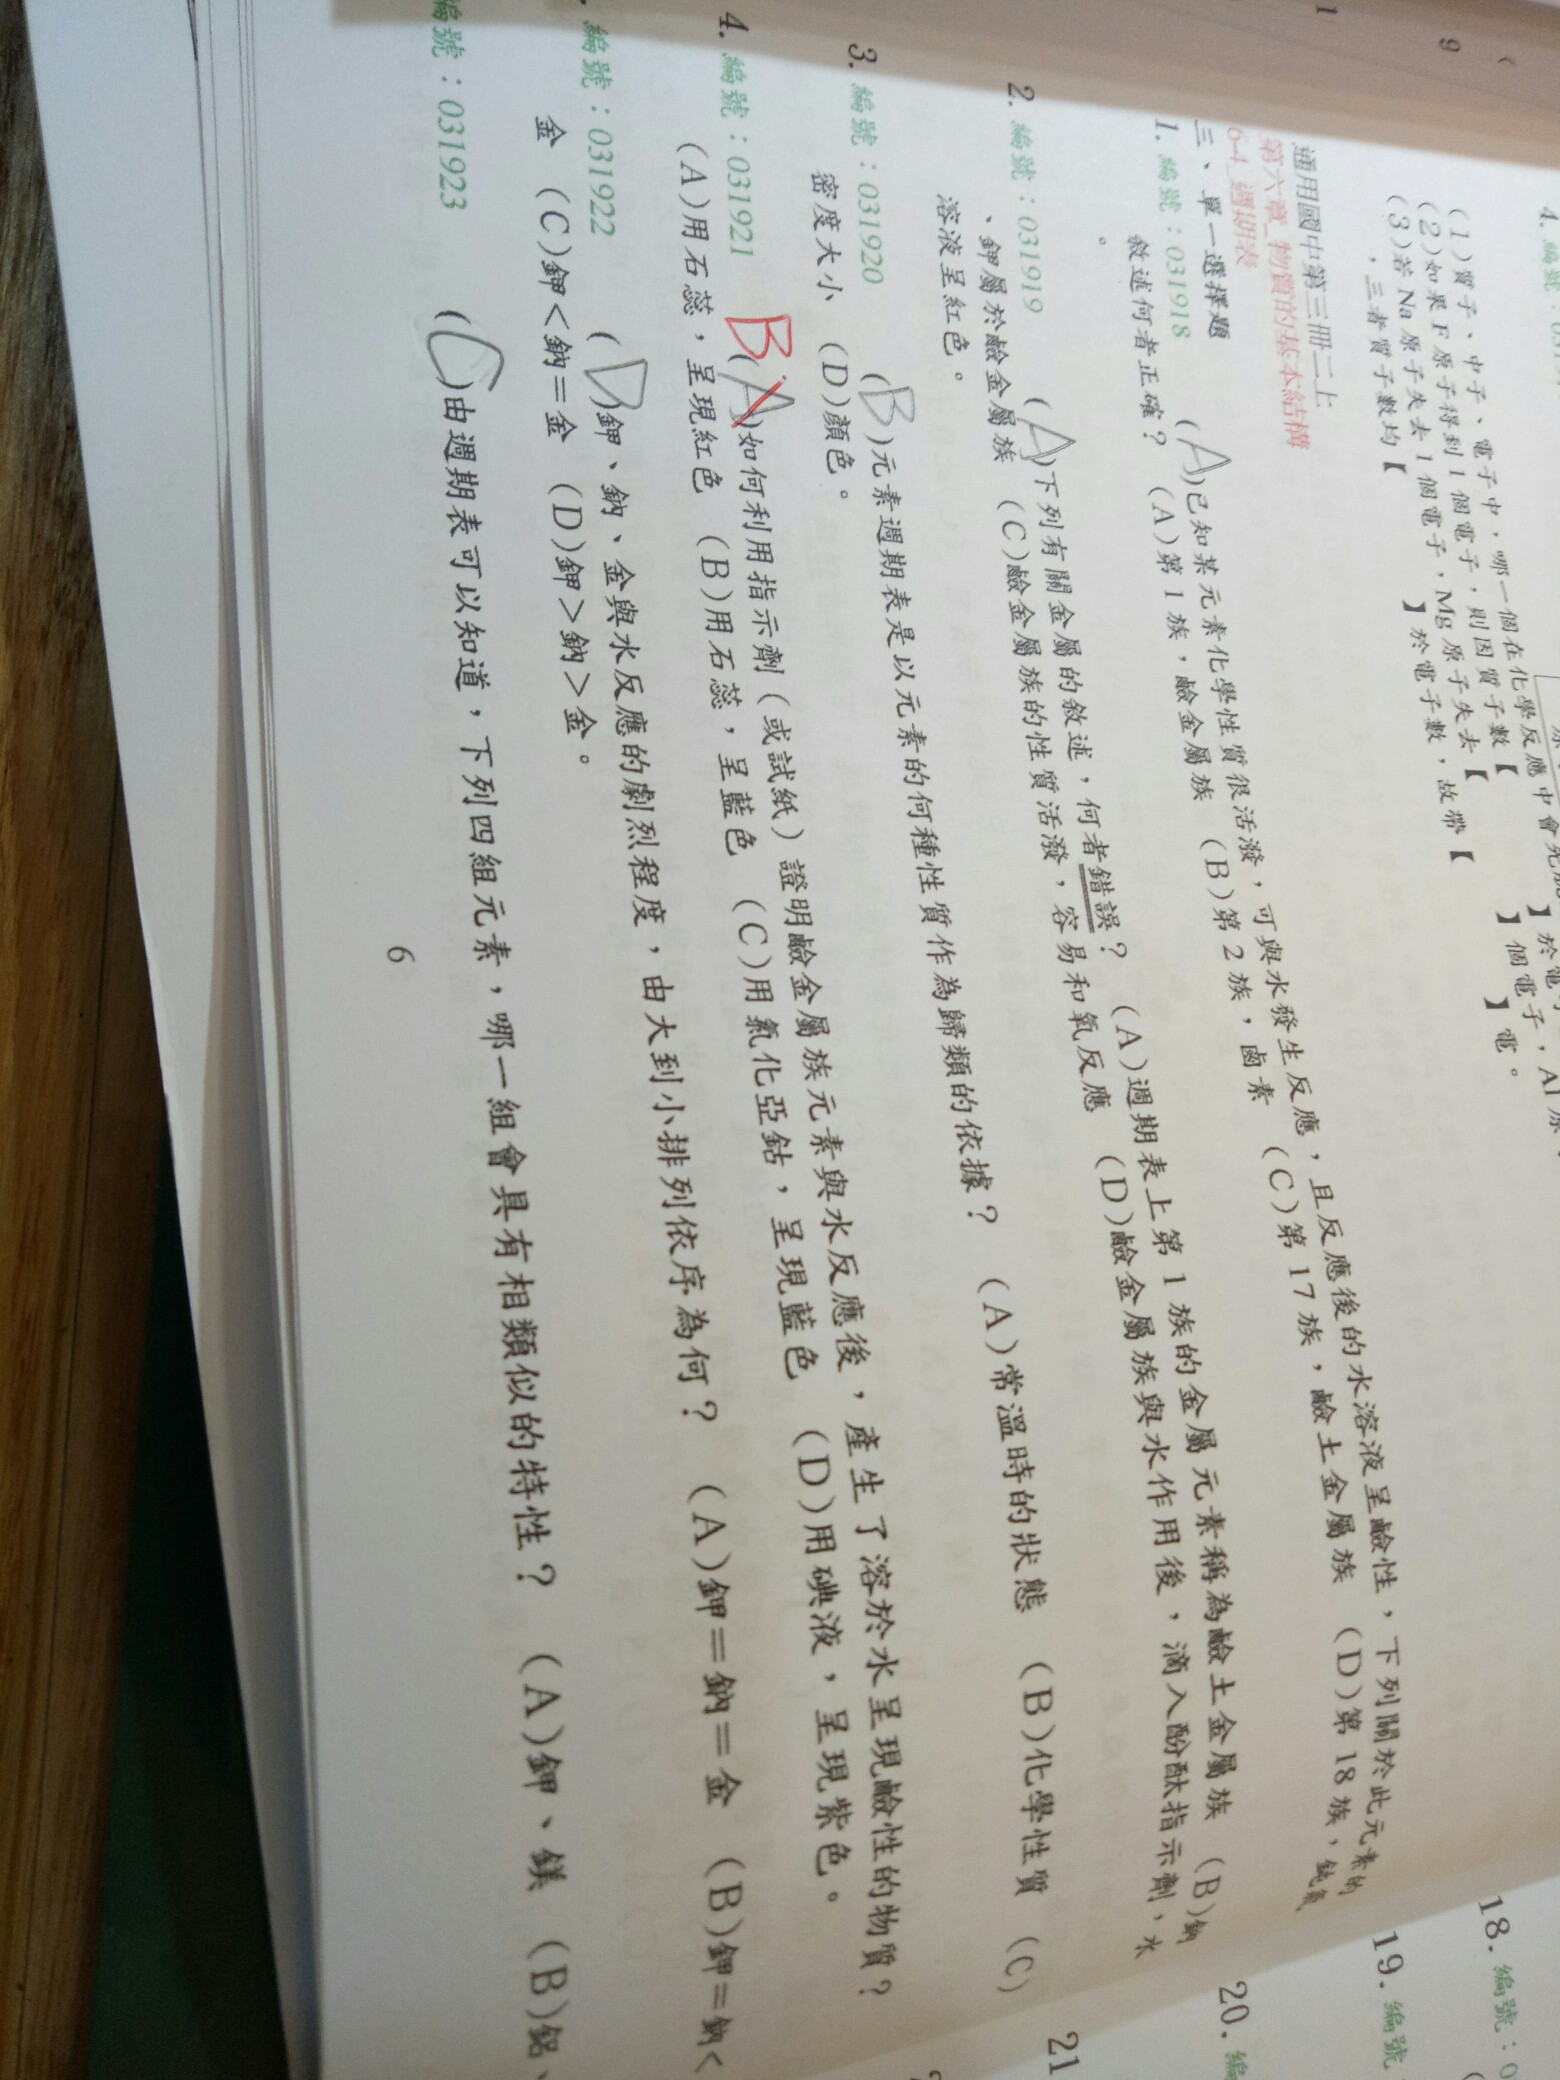 4. 編號：
(1)質子、中子、電子中，哪一個在化學反應中會
(2)如果F原子得到1個電子，則因質子數【 】於電子
(3)若Na原子失去1個電子，Mg原子失去【 】個電子，Al原
，三者質子數均【 】於電子數，故帶【 】電。
通用國中第三冊二上
第六章_物質的基本結構
6-4_週期表
三、單一選擇題
1. 編號：031918
(A)已知某元素化學性質很活潑，可與水發生反應，且反應後的水溶液呈鹼性，下列關於此元素的
敘述何者正確？ (A)第1族，鹼金屬族 (B)第2族，鹵素 (C)第17族，鹼土金屬族 (D)第18族，鈍氣
。
2. 編號：031919
(A)下列有關金屬的敘述，何者錯誤？ (A)週期表上第1族的金屬元素稱為鹼土金屬族 (B)鈉
、鉀屬於鹼金屬族 (C)鹼金屬族的性質活潑，容易和氧反應 (D)鹼金屬族與水作用後，滴入酚酞指示劑，水
溶液呈紅色。
3. 編號：031920
(B)元素週期表是以元素的何種性質作為歸類的依據？ (A)常溫時的狀態 (B)化學性質 (C)
密度大小 (D)顏色。
4. 編號：031921
B(A)如何利用指示劑（或試紙）證明鹼金屬族元素與水反應後，產生了溶於水呈現鹼性的物質？
(A)用石蕊，呈現紅色 (B)用石蕊，呈藍色 (C)用氯化亞鈷，呈現藍色 (D)用碘液，呈現紫色。
. 編號：031922
(D)鉀、鈉、金與水反應的劇烈程度，由大到小排列依序為何？ (A)鉀＝鈉＝金 (B)鉀＝鈉＜
金 (C)鉀＜鈉＝金 (D)鉀＞鈉＞金。
編號：031923
(C)由週期表可以知道，下列四組元素，哪一組會具有相類似的特性？ (A)鉀、鎂 (B)鋁、
6
18. 編號：0
19. 編號
20. 編
21